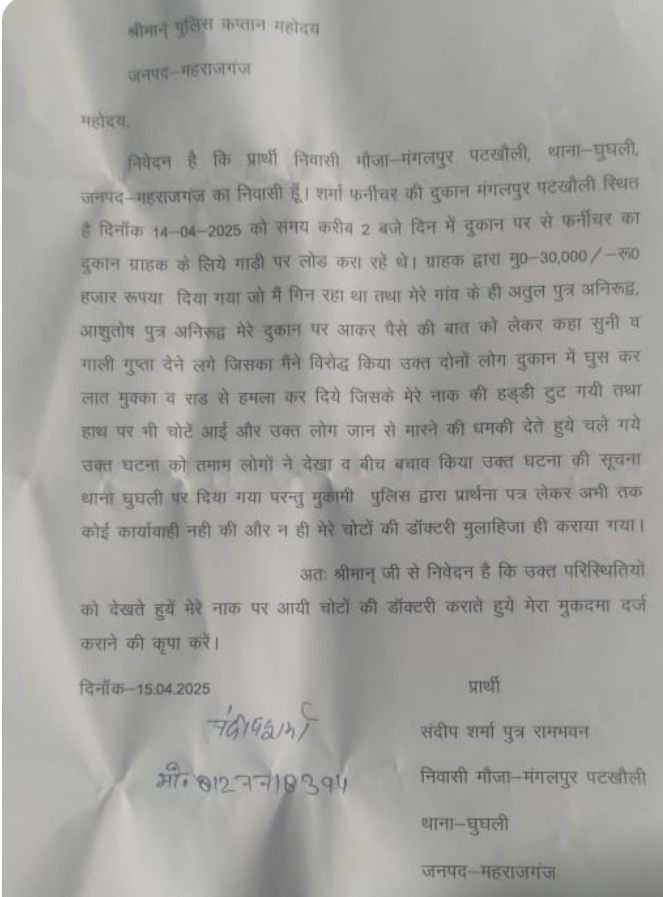 श्रीमान् पुलिस कप्तान महोदय
जनपद–महराजगंज
महोदय,
निवेदन है कि प्रार्थी निवासी मौजा–मंगलपुर पटखौली, थाना–घुघली,
जनपद–महराजगंज का निवासी हूँ। शर्मा फर्नीचर की दुकान मंगलपुर पटखौली स्थित
है दिनाँक 14–04–2025 को समय करीब 2 बजे दिन में दुकान पर से फर्नीचर का
दुकान ग्राहक के लिये गाढ़ी पर लोड करा रहें थे। ग्राहक द्वारा मु0–30,000/–रू0
हजार रूपया दिया गया जो मैं गिन रहा था तथा मेरे गांव के ही अतुल पुत्र अनिरूद्व,
आशुतोष पुत्र अनिरूद्व मेरे दुकान पर आकर पैसे की बात को लेकर कहा सुनी व
गाली गुप्ता देने लगे जिसका मैंने विरोद्ध किया उक्त दोनों लोग दुकान में घुस कर
लात मुक्का व राड से हमला कर दिये जिसके मेरे नाक की हड्डी टुट गयी तथा
हाथ पर भी चोटें आई और उक्त लोग जान से मारने की धमकी देते हुये चले गये
उक्त घटना को तमाम लोगों ने देखा व बीच बचाव किया उक्त घटना की सूचना
थाना घुघली पर दिया गया परन्तु मुकामी पुलिस द्वारा प्रार्थना पत्र लेकर अभी तक
कोई कार्यावाही नही की और न ही मेरे चोटों की डॉक्टरी मुलाहिजा ही कराया गया।
अतः श्रीमान् जी से निवेदन है कि उक्त परिस्थितियों
को देखते हुयें मेरे नाक पर आयी चोटों की डॉक्टरी कराते हुये मेरा मुकदमा दर्ज
कराने की कृपा करें।
दिनाँक–15.04.2025
प्रार्थी
संदीप शर्मा
संदीप शर्मा पुत्र रामभवन
मो.
निवासी मौजा–मंगलपुर पटखौली
थाना–घुघली
जनपद–महराजगंज